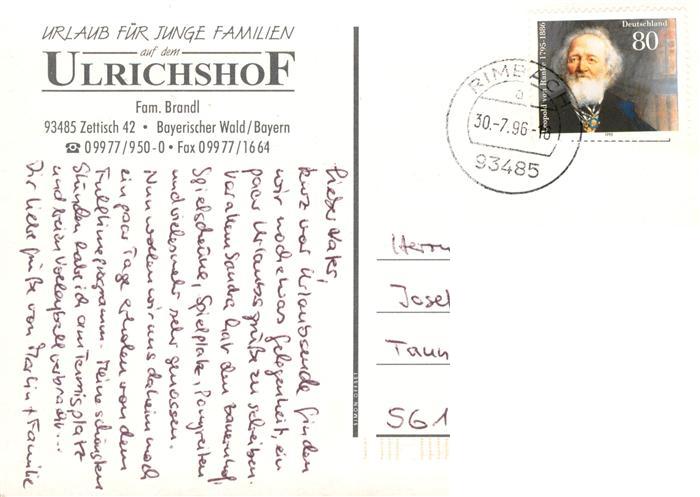 URLAUB FÜR JUNGE FAMILIEN
auf dem
ULRICHSHOF
Fam. Brandl
93485 Zettisch 42 • Bayerischer Wald/Bayern
☎ 09977/950-0 • Fax 09977/1664
Lieber Vater,
kurz vor Urlaubsende finden
wir noch etwas Gelegenheit, ein
paar Urlaubsgrüße zu schreiben.
Vor allem Sandra hat den Bauernhof,
Spielscheune, Spielplatz, Ponyreiten
und vieles mehr sehr genossen.
Nun wollen wir uns daheim noch
ein paar Tage erholen von dem
Fulltimeprogramm. Meine schönsten
Stunden habe ich am Tennisplatz
und beim Volleyball verbracht...
Dir liebe Grüße von Martin + Familie
Deutschland
80
Leopold von Ranke 1795-1886
1995
RIMBACH
a
30.-7.96-18
93485
Herrn
Josef
Tann
561